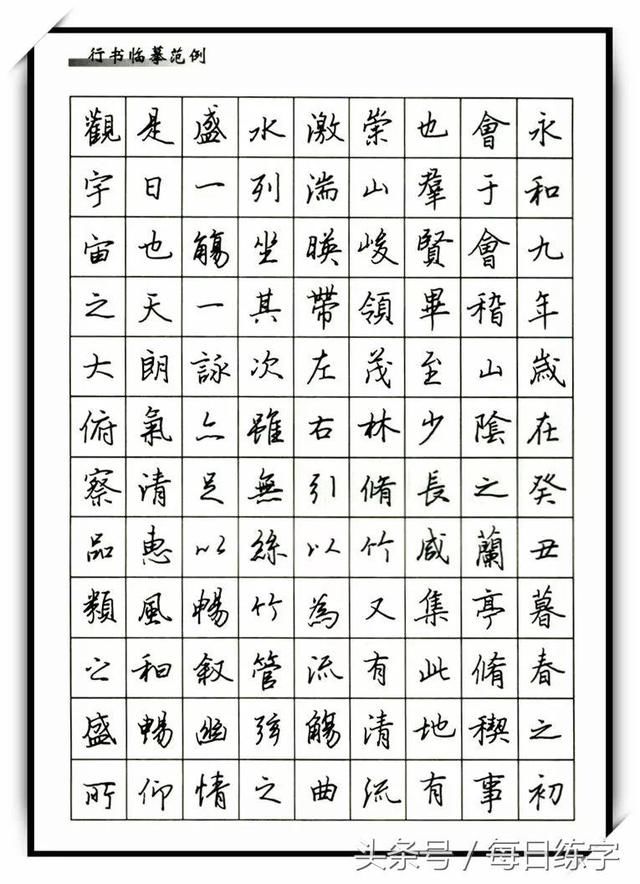 行书临摹范例
永和九年歲在癸丑暮春之初
會于會稽山陰之蘭亭脩稧事
也羣賢畢至少長咸集此地有
崇山峻領茂林脩竹又有清流
激湍暎帶左右引以為流觴曲
水列坐其次雖無絲竹管弦之
盛一觴一詠亦足以暢叙幽情
是日也天朗氣清惠風和暢仰
觀宇宙之大俯察品類之盛所
头条号 / 每日练字